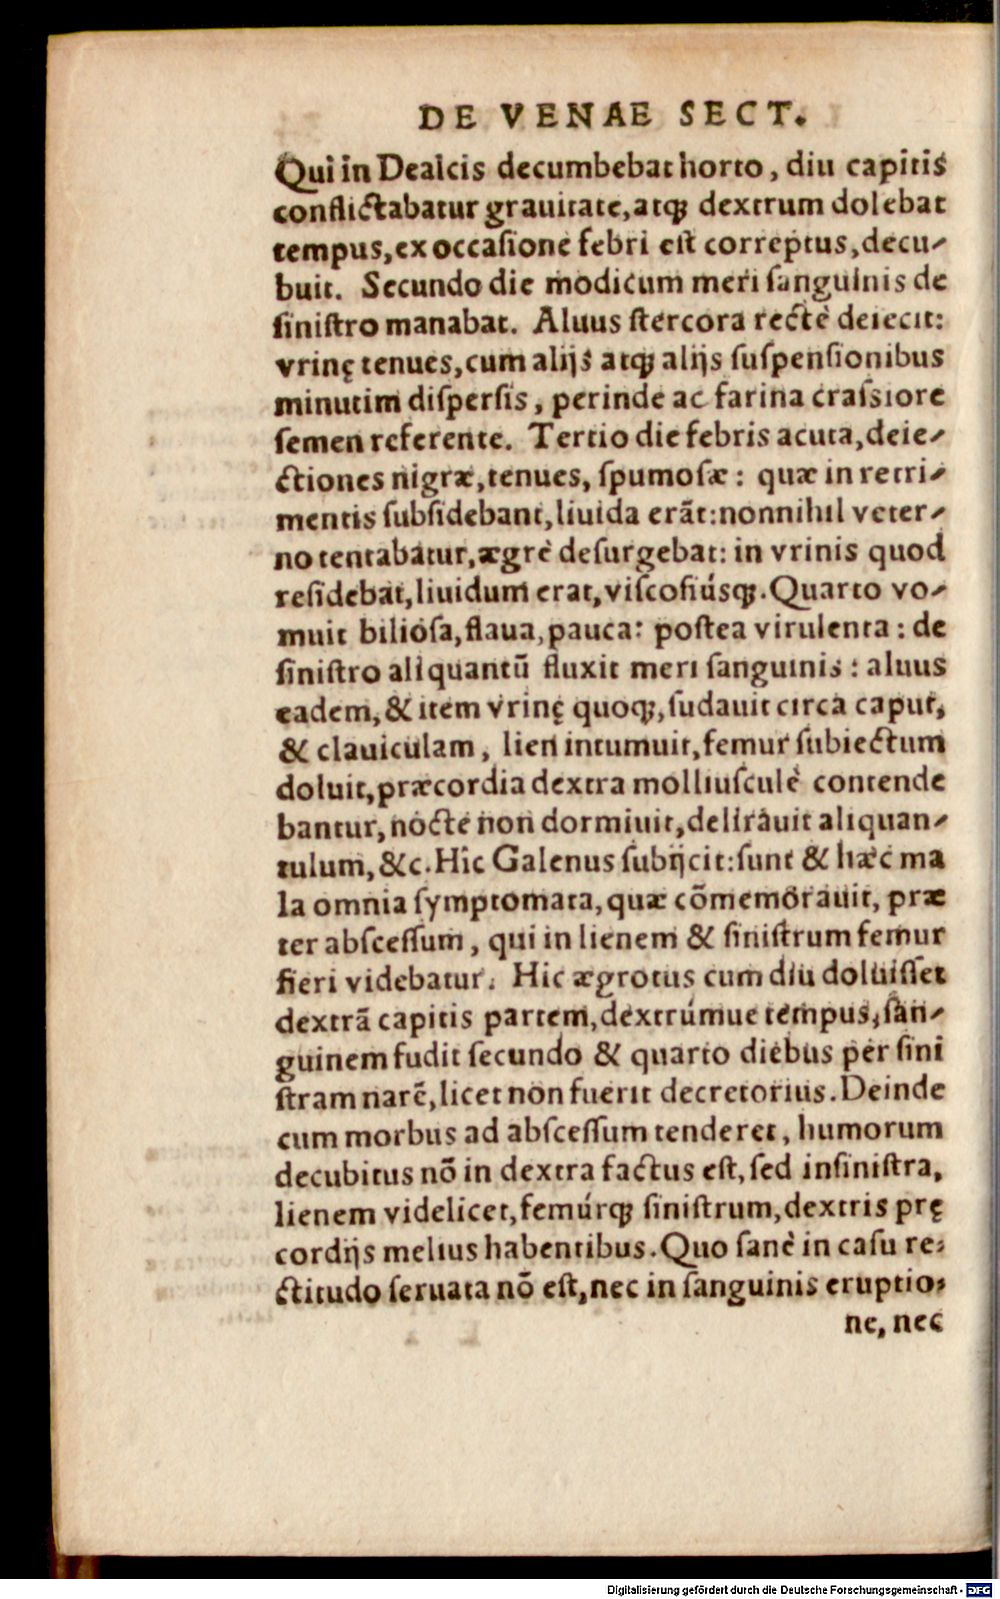 DE VENAE SECT.
Qui in Dealcis decumbebat horto, diu capitis
conflictabatur grauitate, atqꝫ dextrum dolebat
tempus, ex occaſione febri eſt correptus, decu-
buit. Secundo die modicum meri ſanguinis de
ſiniſtro manabat. Aluus ſtercora rectè deiecit:
vrinę tenues, cum alijs atqꝫ alijs ſuſpenſionibus
minutim diſperſis, perinde ac farina craſsiore
ſemen referente. Tertio die febris acuta, deie-
ctiones nigræ, tenues, ſpumoſæ: quæ in retri-
mentis ſubſidebant, liuida erãt: nonnihil veter-
no tentabatur, ægrè deſurgebat: in vrinis quod
reſidebat, liuidum erat, viſcoſiúsqꝫ. Quarto vo-
muit bilioſa, flaua, pauca: poſtea virulenta: de
ſiniſtro aliquantũ fluxit meri ſanguinis: aluus
eadem, & item vrinę quoqꝫ, ſudauit circa caput,
& clauiculam, lien intumuit, femur ſubiectum
doluit, præcordia dextra molliuſculè contende
bantur, nocte non dormiuit, delirauit aliquan-
tulum, &c. Hic Galenus ſubijcit: ſunt & hæc ma
la omnia ſymptomata, quæ cõmemorauit, præ
ter abſceſſum, qui in lienem & ſiniſtrum femur
fieri videbatur. Hic ægrotus cum diu doluiſſet
dextrã capitis partem, dextrúmue tempus, ſan-
guinem fudit ſecundo & quarto diebus per ſini
ſtram narẽ, licet non fuerit decretorius. Deinde
cum morbus ad abſceſſum tenderet, humorum
decubitus nõ in dextra factus eſt, ſed in ſiniſtra,
lienem videlicet, femúrqꝫ ſiniſtrum, dextris prę
cordijs melius habentibus. Quo ſanè in caſu re-
ctitudo ſeruata nõ eſt, nec in ſanguinis eruptio-
ne, nec
Digitalisierung gefördert durch die Deutsche Forschungsgemeinschaft - DFG